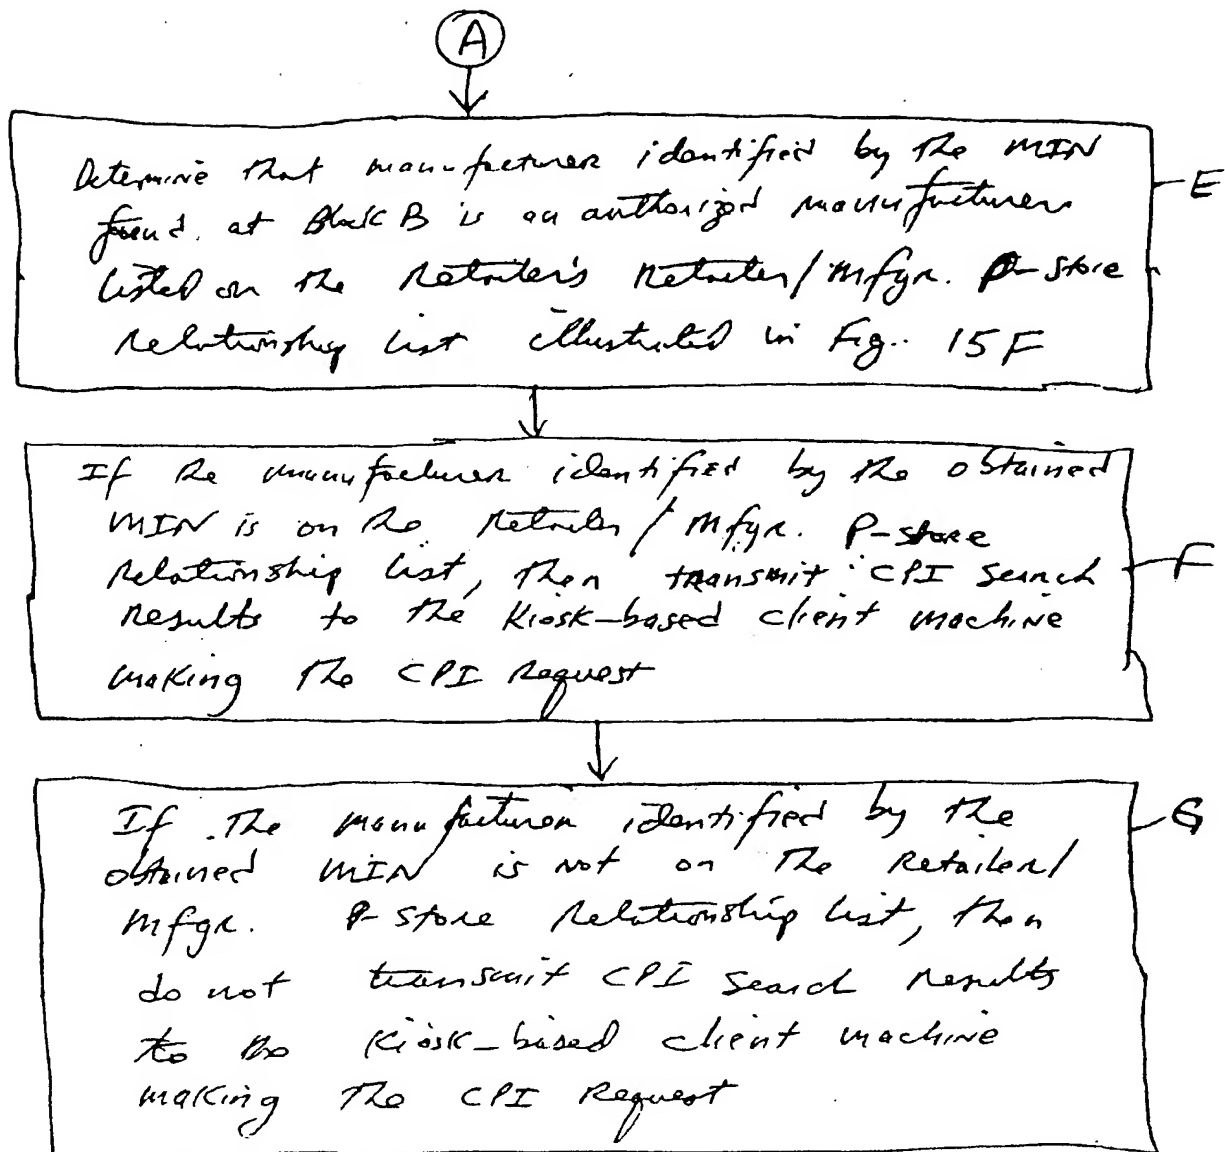 A
Determine that manufacturer identified by the MIN
E
found. at Block B is an authorized manufacturer
listed on the Retailer's Retailer/Mfgr. P-Store
relationship list illustrated in Fig. 15F
If the manufacturer identified by the obtained
MIN is on the Retailer/Mfgr. P-store
relationship list, then transmit CPI Search
F
Results to the Kiosk-based client machine
making the CPI Request
If the manufacturer identified by the
G
obtained MIN is not on the Retailer/
Mfgr. P-Store relationship list, then
do not transmit CPI Search Results
to the Kiosk-based client machine
making the CPI Request